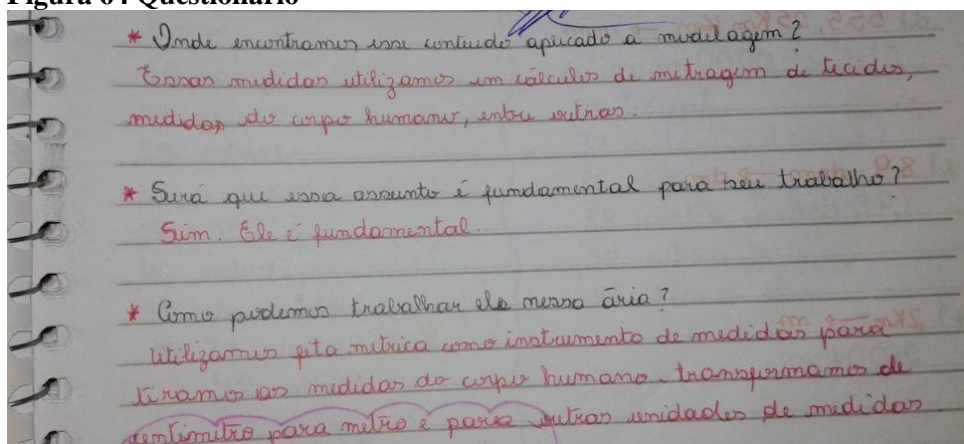 Figura 64 Questionário
* Onde encontramos esse conteudo apricado a modelagem?
Essas medidas utilizamos em cálculos de metragem de tecidos,
medidas do corpo humano, entre outras.
* Será que essa assunto é fundamental para seu trabalho?
Sim. Ele é fundamental.
* Como podemos trabalhar ele nessa ária?
Utilizamos fita metrica como instrumento de medidas para
tiramos as medidas do corpo humano. transformamos de
centimetro para metro e para outras unidades de medidas